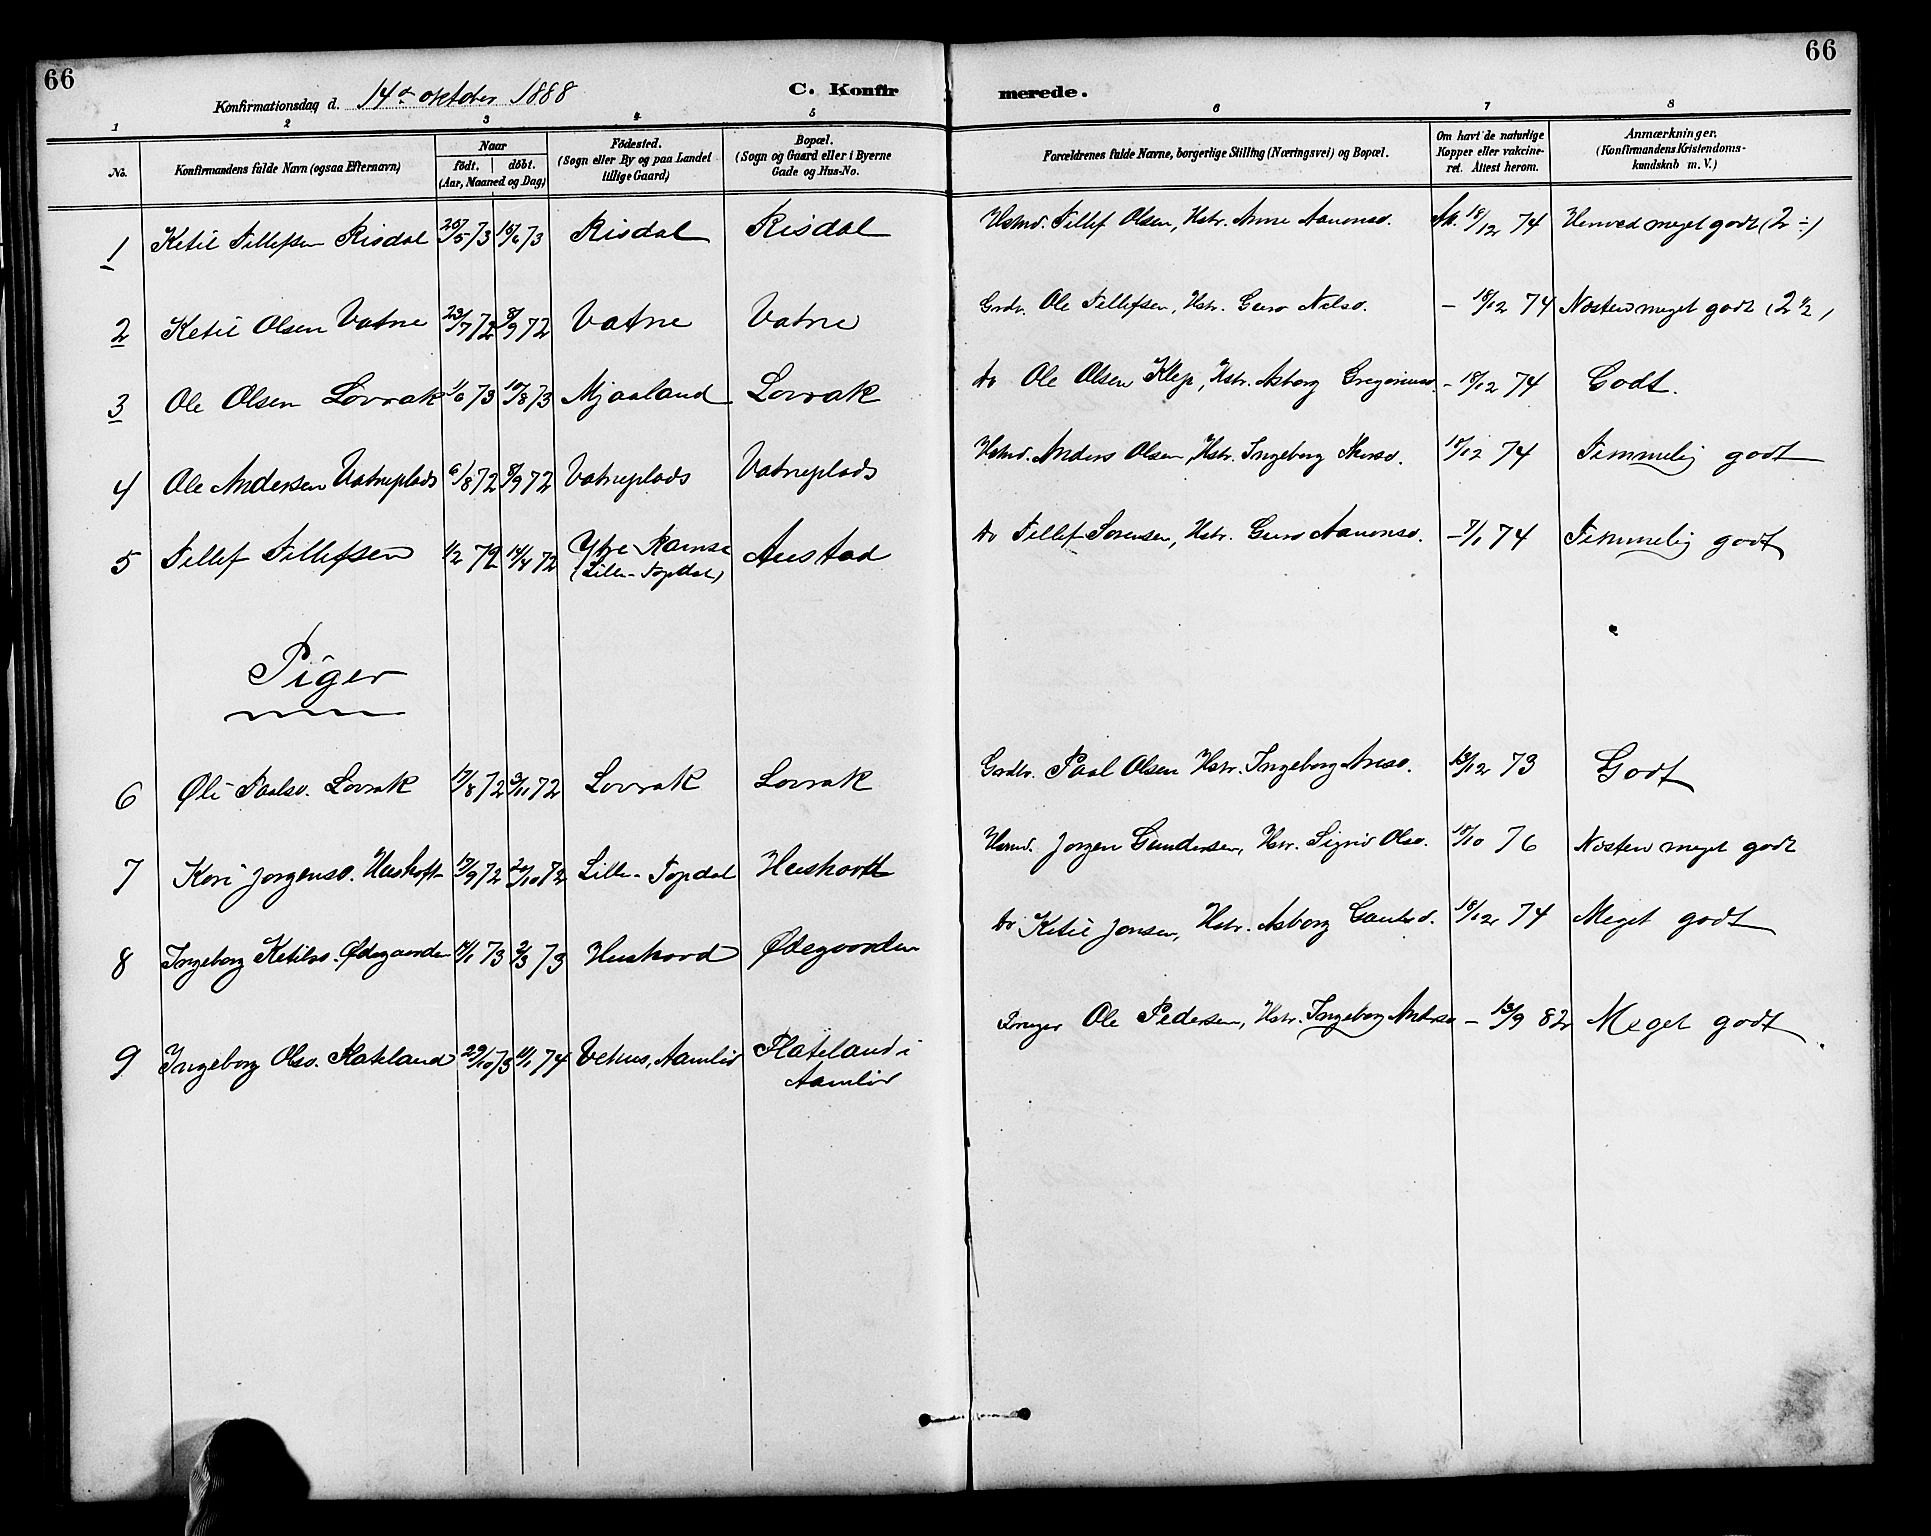 66
66
Konfirmationsdag d. 14de oktober 1888
C. Konfir merede.
1 2 3 4 5 6 7 8
No.
Konfirmandens fulde Navn (ogsaa Efternavn)
Naar
födt. döbt.
(Aar, Maaned og Dag)
Födested.
(Sogn eller By og paa Landet
tillige Gaard)
Bopæl.
(Sogn og Gaard eller i Byerne
Gade og Hus-No.
Forældrenes fulde Navne, borgerlige Stilling (Næringsvei) og Bopæl.
Om havt de naturlige
Kopper eller vakcine-
ret. Attest herom.
Anmærkninger.
(Konfirmandens Kristendoms-
kundskab m. V.)
1 Ketil Tellefsen Risdal 25/5 73 15/6 73 Risdal Risdal Husmd. Tellef Olsen, Hstr. Anne Aanonsd. 18/12 74 Henved meget godt (2 ÷)
2 Ketil Olsen Vatne 23/7 72 8/9 72 Vatne Vatne Grdbr. Ole Tellefsen, Hstr. Guro Nilsd. - 18/12 74 Næsten meget godt (2 1/2)
3 Ole Olsen Lovrak 1/6 73 10/8 73 Mjaaland Lovrak do Ole Olsen Klep, Hstr. Asborg Gregoriusd. - 18/12 74 Godt.
4 Ole Andersen Vatneplads 6/8 72 8/9 72 Vatneplads Vatneplads Husmd. Anders Olsen, Hstr. Ingeborg 18/12 74 Temmelig godt
5 Tellef Tellefsen 1/2 72 14/4 72 Ytre Ramse Austad do Tellef Sørensen, Hstr. Guro Aanonsd. - 7/1 74 Temmelig godt
(Lille-Topdal)
Piger
6 Øli Paalsd. Lovrak 17/8 72 3/11 72 Lovrak Lovrak Gardbr. Paal Olsen Hstr. Ingeborg Aresd. 13/12 73 Godt
7 Kari Jørgensd. 17/9 72 20/10 72 Lille-Topdal Jørgen Gundersen, Hstr. Sigrid Olsd. 10/10 76 Næsten meget godt
8 Ingeborg Ketilsd. Ødegaarden 14/1 73 2/3 73 Huskaard Ødegaarden do Ketil Jonsen, Hstr. Asborg 18/12 74 Meget godt
9 Ingeborg Olsd. Flateland 29/10 73 11/1 74 Vehus, Aamlid Flateland i Ole Pedersen, Hstr. Ingeborg - 13/9 82 Meget godt
Aamlid